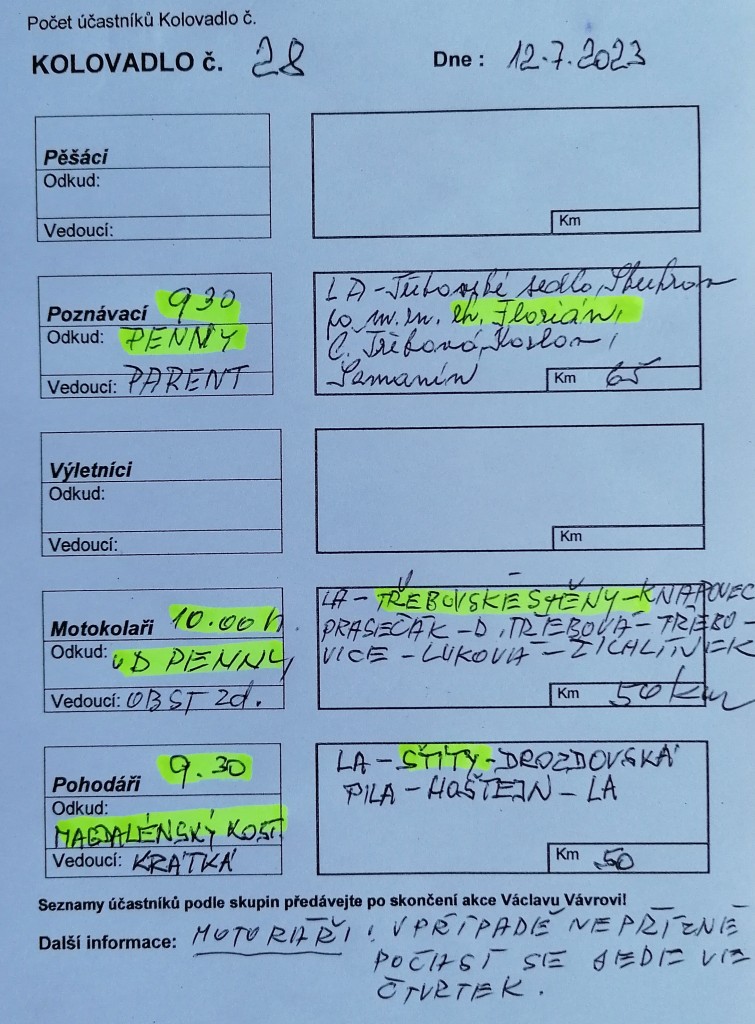 Počet účastníků Kolovadlo č.
KOLOVADLO č. 28 Dne : 12.7.2023
Pěšáci
Odkud:
Vedoucí:
Km
Poznávací 930
Odkud: PENNY
Vedoucí: PARENT
LA - Třebovské sedlo,
po m.m. ch. Florián,
Č. Třebová, Kozlov,
Km 65
Výletníci
Odkud:
Vedoucí:
Km
Motokolaři 10.00 h.
Odkud: OD PENNY
Vedoucí: OBST Zd.
LA - TŘEBOVSKÉ STĚNY - KNAPOVEC
PRASEČÁK - D. TŘEBOVÁ - TŘEBO -
VICE - LUKOVÁ - ŽICHLÍNEK
Km 50 km
Pohodáři 9.30
Odkud:
MAGDALÉNSKÝ KOST.
Vedoucí: KRÁTKÁ
LA - ŠTÍTY - DROZDOVSKÁ
PILA - HOŠTEJN - LA
Km 50
Seznamy účastníků podle skupin předávejte po skončení akce Václavu Vávrovi!
Další informace: MOTORÁŘI! V PŘÍPADĚ NEPŘÍZNĚ
POČASÍ SE JEDE VE
ČTVRTEK.